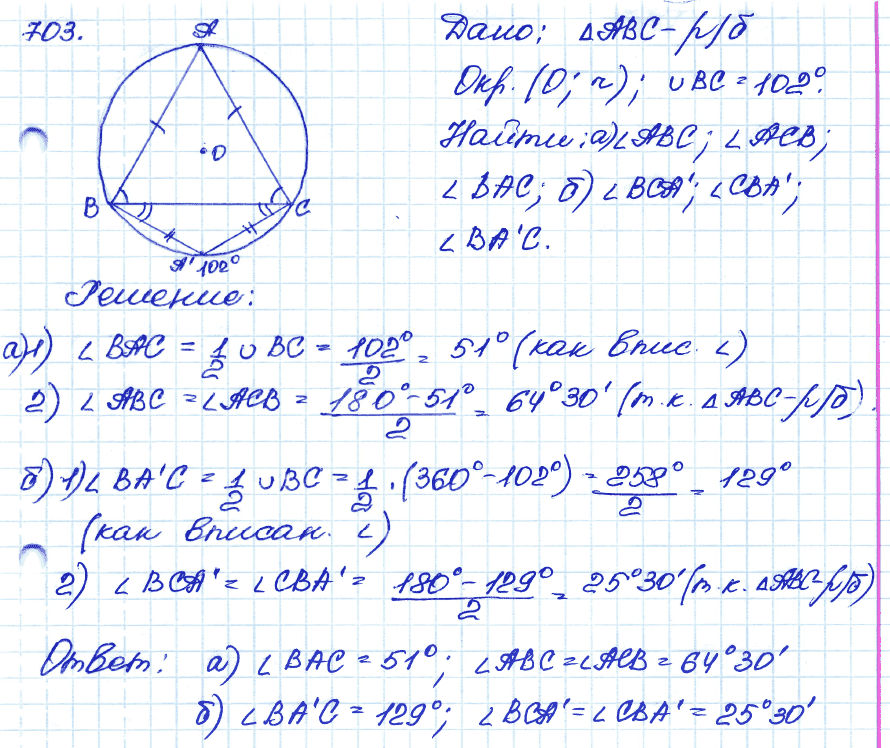 703.
A
Дано: △ABC - р/б
Окр. (O; r); ∪BC = 102°.
O
Найти: а) ∠ABC; ∠ACB;
B
C
∠BAC; б) ∠BCA'; ∠CBA';
∠BA'C.
A' 102°
Решение:
а) 1) ∠BAC = 1/2 ∪BC = 102°/2 = 51° (как впис. ∠)
2) ∠ABC = ∠ACB = (180° - 51°)/2 = 64°30' (т.к. △ABC - р/б).
б) 1) ∠BA'C = 1/2 ∪BC = 1/2 · (360° - 102°) = 258°/2 = 129°
(как вписан. ∠)
2) ∠BCA' = ∠CBA' = (180° - 129°)/2 = 25°30' (т.к. △ABC - р/б)
Ответ: а) ∠BAC = 51°; ∠ABC = ∠ACB = 64°30'
б) ∠BA'C = 129°; ∠BCA' = ∠CBA' = 25°30'